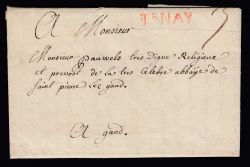 A Monsieur
TRNAY
Monsieur Pauwels tres Digne Religieux
et prevost de la tres Celebre abbaÿe de
Saint pierre lez gand.
A gand.